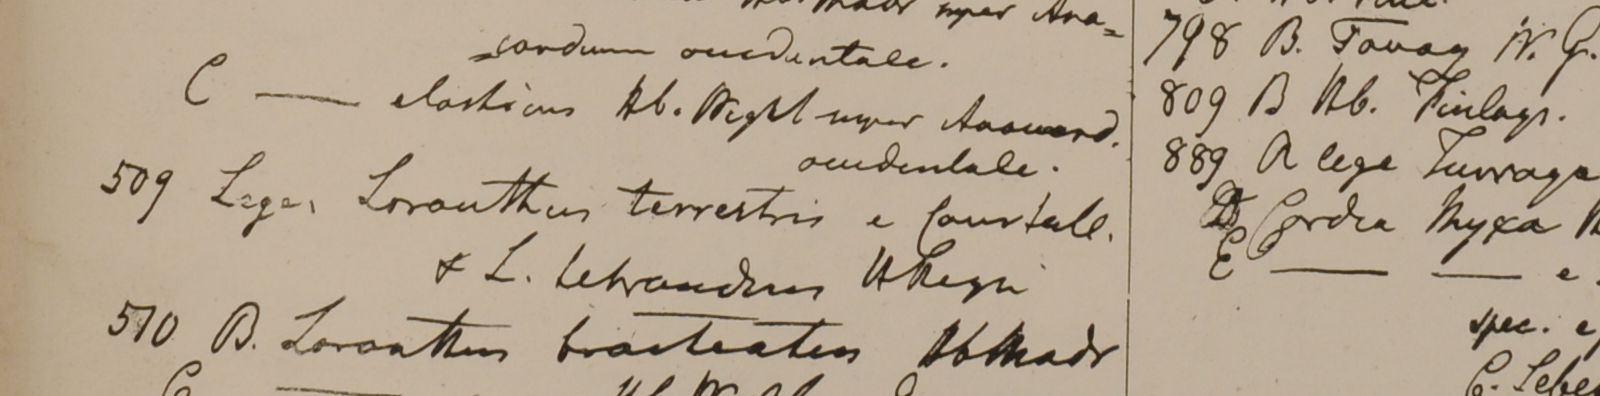 Hb Madr super Ana=
=cardium occidentale.
C — elasticus Hb. Wight super Anacard.
occidentale.
509 Lege. Loranthus terrestris e Courtall.
& L. tetrandrus H Regii
510 B. Loranthus bracteatus Hb Madr
C —
798 B. Tavay W. G.
809 B Hb. Finlays.
889 A lege Turraya
D Cordia Myxa
E — — e
spec. e